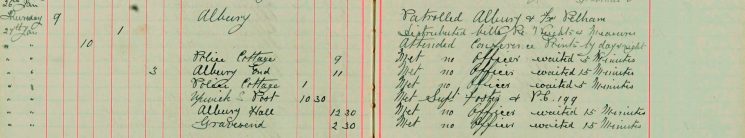 Thursday 9 Albury Patrolled Albury & Fx Pelham
27th Jan 1 Distributed bills Re Weights & Measures
" " 10 Attended Conference Points by day & night
" " Police Cottage 9 Met no Officer waited 5 Minutes
" " 3 Albury End 11 Met no Officer waited 15 Minutes
" " Police Cottage 1 Met no Officer waited 5 Minutes
" " Upwick S Post 10 30 Met Supt Foster & P.C. 199
" " Albury Hall 12 30 Met no Officer waited 15 Minutes
" " Gravesend 2 30 Met no Officer waited 15 Minutes